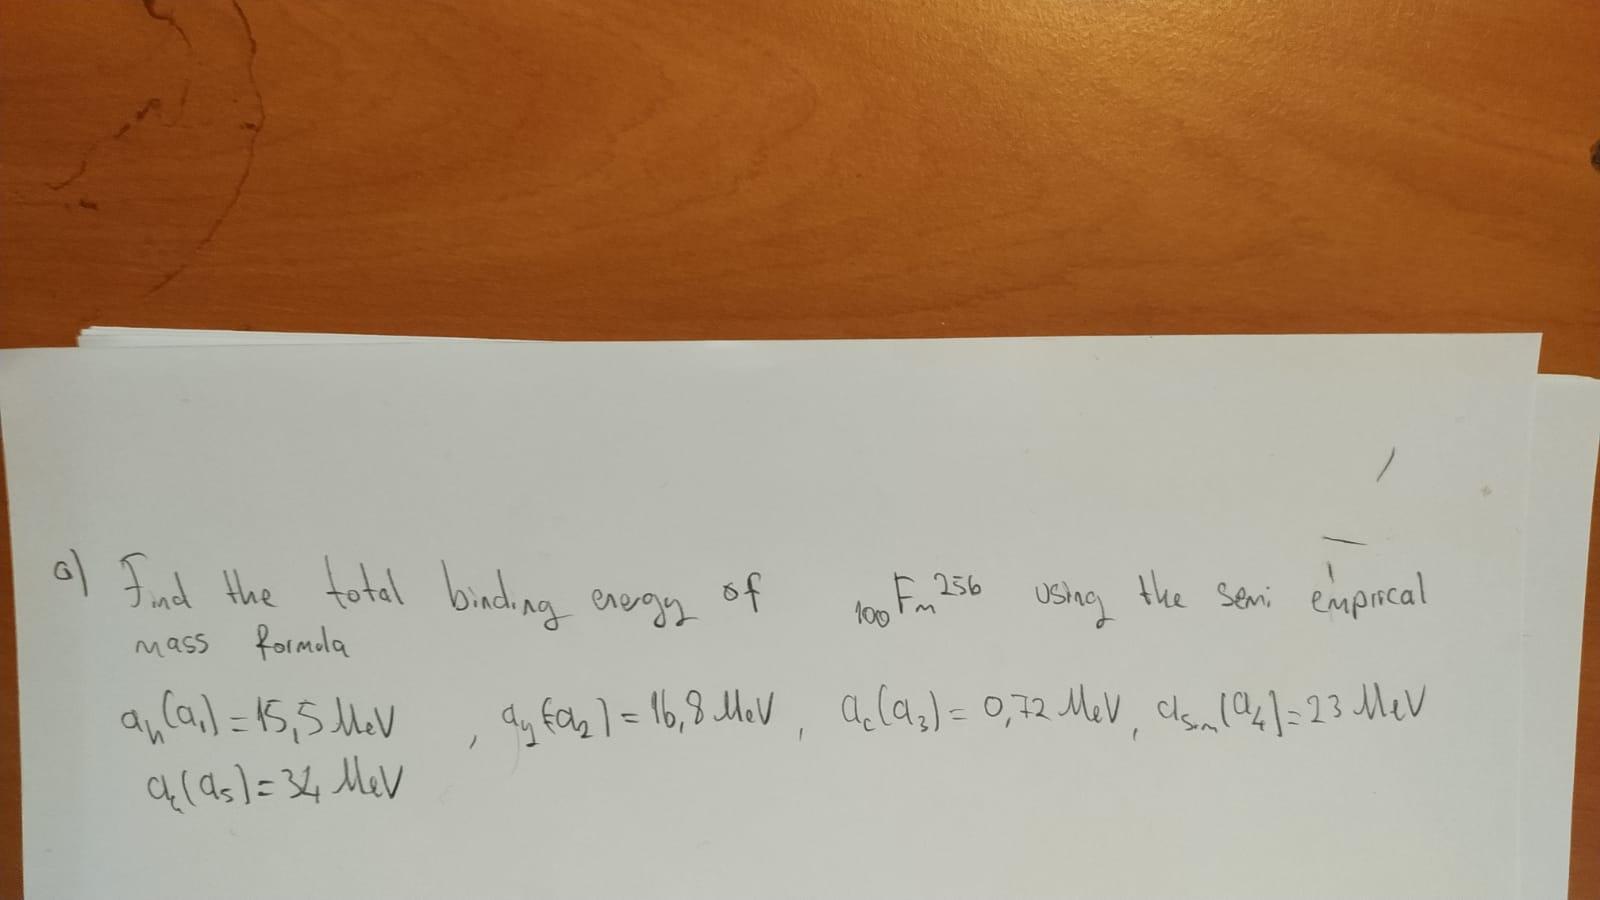 a) Find the total binding energy of ₁₀₀Fm²⁵⁶ using the semi emprical
mass formula
aₕ(a₁) = 15,5 MeV , a_y(a₂) = 16,8 MeV , a_c(a₃) = 0,72 MeV , a_sim(a₄) = 23 MeV
(a₅) = 34 MeV